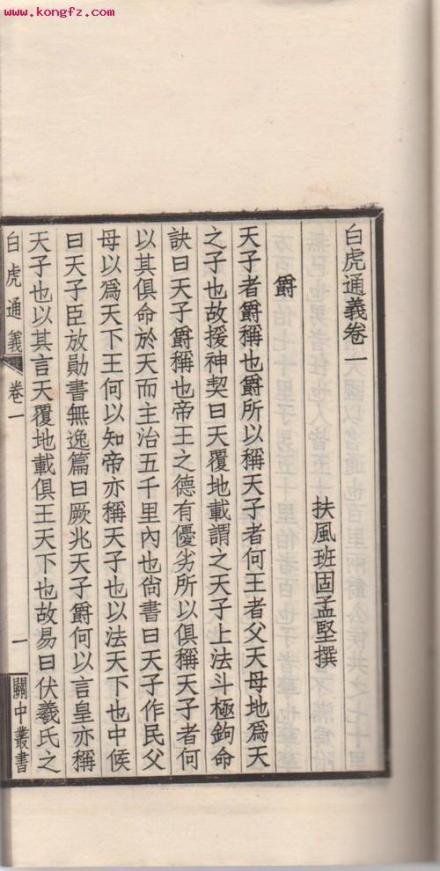 www.kongfz.com
白虎通義卷一
扶風班固孟堅撰
爵
天子者爵稱也爵所以稱天子者何王者父天母地爲天
之子也故援神契曰天覆地載謂之天子上法斗極鉤命
訣曰天子爵稱也帝王之德有優劣所以俱稱天子者何
以其俱命於天而主治五千里內也尙書曰天子作民父
母以爲天下王何以知帝亦稱天子也以法天下也中候
曰天子臣放勛書無逸篇曰厥兆天子爵何以言皇亦稱
天子也以其言天覆地載俱王天下也故易曰伏羲氏之
白虎通義
卷一
一
關中叢書